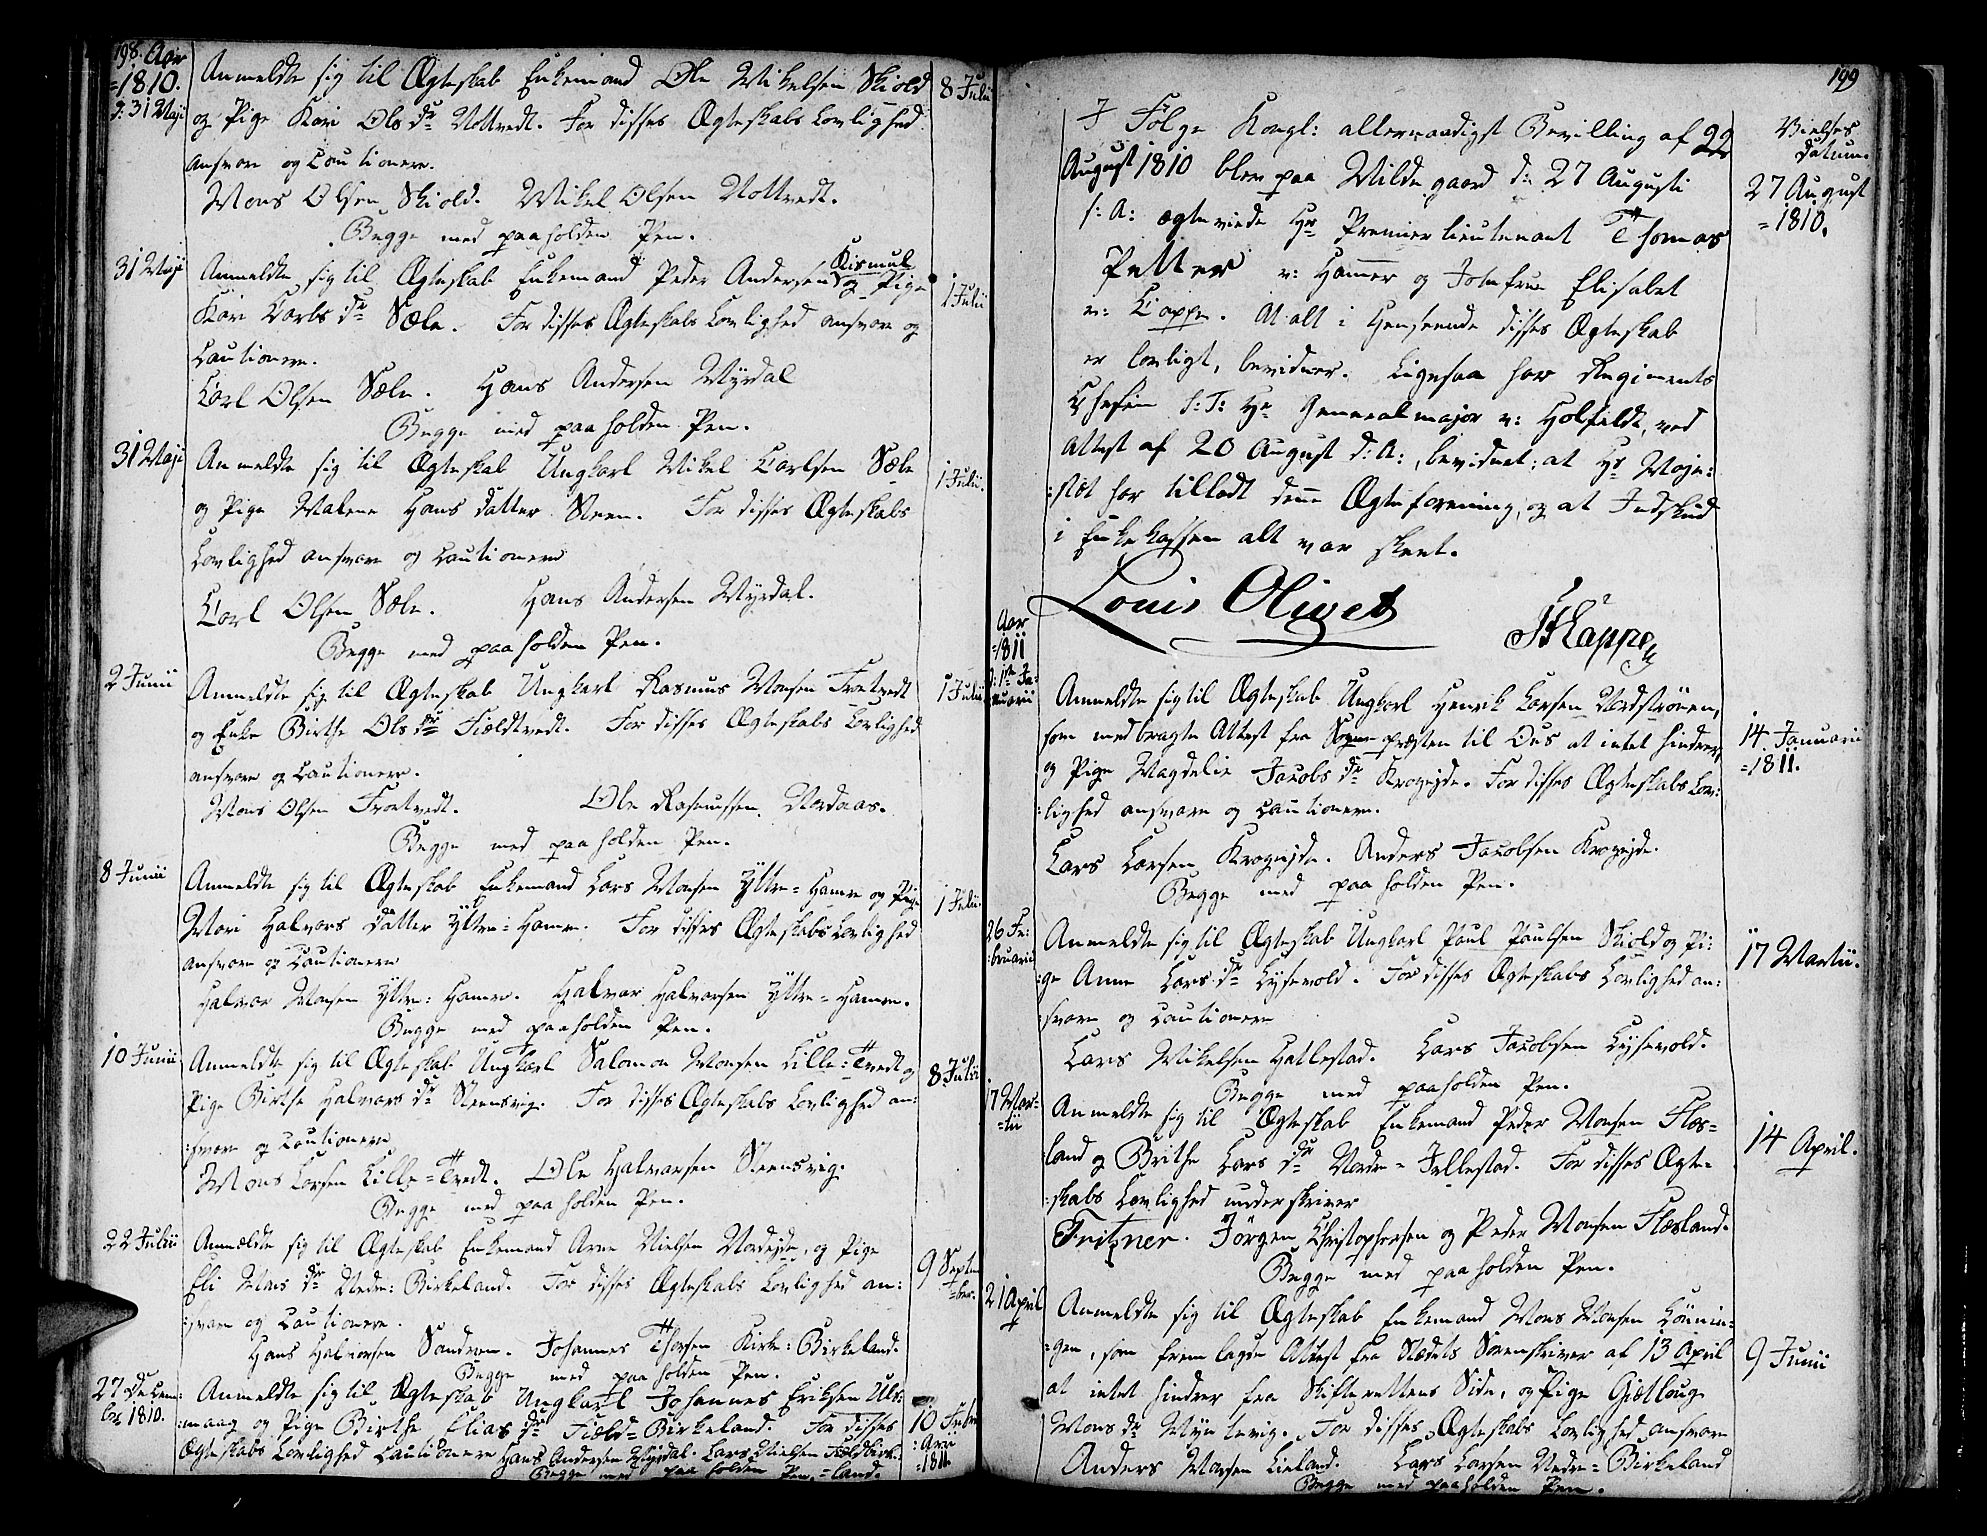 198. Aar
=1810.
d: 31 Maji
Anmeldte sig til Ægteskab Enkemand Ole Mikelsen Skiold
8 Julii
og Pige Kari Ols dr Nottvedt. For disses Ægteskabs Lovlighed
ansvare og Cautionere.
Mons Olsen Skiold. Mikel Olsen Nottvedt.
Begge med paaholden Pen.
31 Maji
Anmeldte sig til Ægteskab Enkemand Peder Andersen Kismul og Pige
1 Julii
Kari Carls dr Sæle. For disses Ægteskabs Lovlighed ansvare og
Cautionere.
Carl Olsen Sæle. Hans Andersen Myrdal
Begge med paaholden Pen.
31 Maji
Anmeldte sig til Ægteskab Ungkarl Mikel Carlsen Sæle
1 Julii.
og Pige Malene Hans datter Steen. For disses Ægteskabs
Lovlighed ansvare og Cautionere
Carl Olsen Sæle. Hans Andersen Myrdal.
Begge med paaholden Pen.
2 Junii
Anmeldte sig til Ægteskab Ungkarl Rasmus Monsen Trætvedt
1 Julii
og Enke Birthe Ols dr Fieldtvedt. For disses Ægteskabs Lovlighed
ansvare og Cautionere.
Mons Olsen Trætvedt. Ole Rasmussen Nordaas.
Begge med paaholden Pen.
8 Junii
Anmeldte sig til Ægteskab Enkemand Lars Monsen Yttre=Hamre og Pige
1 Julii.
Mari Halvors datter Yttre=Hamre. For disses Ægteskabs Lovlighed
ansvare og Cautionere
Halvor Monsen Yttre=Hamre. Halvor Halvorsen Yttre=Hamre.
Begge med paaholden Pen.
10 Junii
Anmeldte sig til Ægteskab Ungkarl Salomon Monsen Lille=Tvedt og
8 Julii
Pige Birthe Halvors dr Steensvig. For disses Ægteskabs Lovlighed an:
:svare og Cautionere
Mons Larsen Lille=Tvedt. Ole Halvorsen Steensvig.
Begge med paaholden Pen.
22 Julii
Anmældte sig til Ægteskab Enkemand Arne Nielsen Nordejde, og Pige
9 Septem
=ber.
Eli Mons dr Nedre=Birkeland. For disses Ægteskabs Lovlighed an:
:svare og Cautionere.
Hans Halvorsen Sandven. Johannes Thorsen Kirke=Birkeland.
Begge med paaholden Pen.
27 Decem:
ber 1810.
Anmeldte sig til Ægteskab Ungkarl Johannes Eriksen Uls:
:maag og Pige Birthe Elias dr Field=Birkeland. For disses
10 Febru
:arii
=1811
Ægteskabs Lovlighed Cautionere Hans Andersen Myrdal. Lars Nielsen Fieldbirke:
Begge med paaholden Pen. =land.
199
I Følge Kongl: allernaadigst Bevilling af 22
Vielses
datum.
August 1810 blev paa Milde gaard d: 27 Augusti
27 August
=1810.
s: A: ægteviede Hr Premierlieutenant Thomas
Petter v: Hammer og Jomfrue Elisabet
v: Cappe. At alt i Henseende disses Ægteskab
er lovligt, bevidner. Ligesaa har Regiments
Chefen S: T: Hr Generalmajor v: Holfeldt, ved
Attest af 20 August d: A:, bevidnet: at Hs Maje:
:stæt har tilladt denne Ægteforening, og at Indskud
i Enkekassen alt var skeet.
Louis Olivet
Kappe
Aar
=1811
d: 1ste Ja:
nuarii
Anmeldte sig til Ægteskab Ungkarl Henrik Larsen Nordstrønen,
som medbragte Attest fra Sognepræsten til Ous at intet hindrer,
14 Januarii
=1811.
og Pige Magdelie Jacobs dr Krogejde. For disses Ægteskabs Lov:
:lighed ansvare og Cautionere.
Lars Larsen Krogejde. Anders Jacobsen Krogejde.
Begge med paaholden Pen.
26 Fe:
:bruarii
Anmeldte sig til Ægteskab Ungkarl Poul Poulsen Skiold og Pi:
17 Martii.
:ge Anne Lars dr Lysevold. For disses Ægteskabs Lovlighed an:
:svare og Cautionere
Lars Mikelsen Hatlestad. Lars Jacobsen Lysevold.
Begge med paaholden Pen.
17 Mar=
=tii
Anmeldte sig til Ægteskab Enkemand Peder Monsen Fles=
14 April.
land og Brithe Lars dr Nordre=Jellestad. For disses Ægte=
:skabs Lovlighed underskriver
Fritzner. Jörgen Christophersen og Peder Monsen Flesland.
Begge med paaholden Pen.
21 April
Anmeldte sig til Ægteskab Enkemand Mons Monsen Lönnin:
:gen, som fremlagde Attest fra Stædets Sorenskriver af 13 April
9 Junii
at intet hindrer fra Skifterettens Side, og Pige Giætlouge
Mons dr Myntevig. For disses Ægteskabs Lovlighed ansvare
Anders Monsen Lieland. Lars Larsen Nedre=Birkeland
Begge med paaholden Pen.